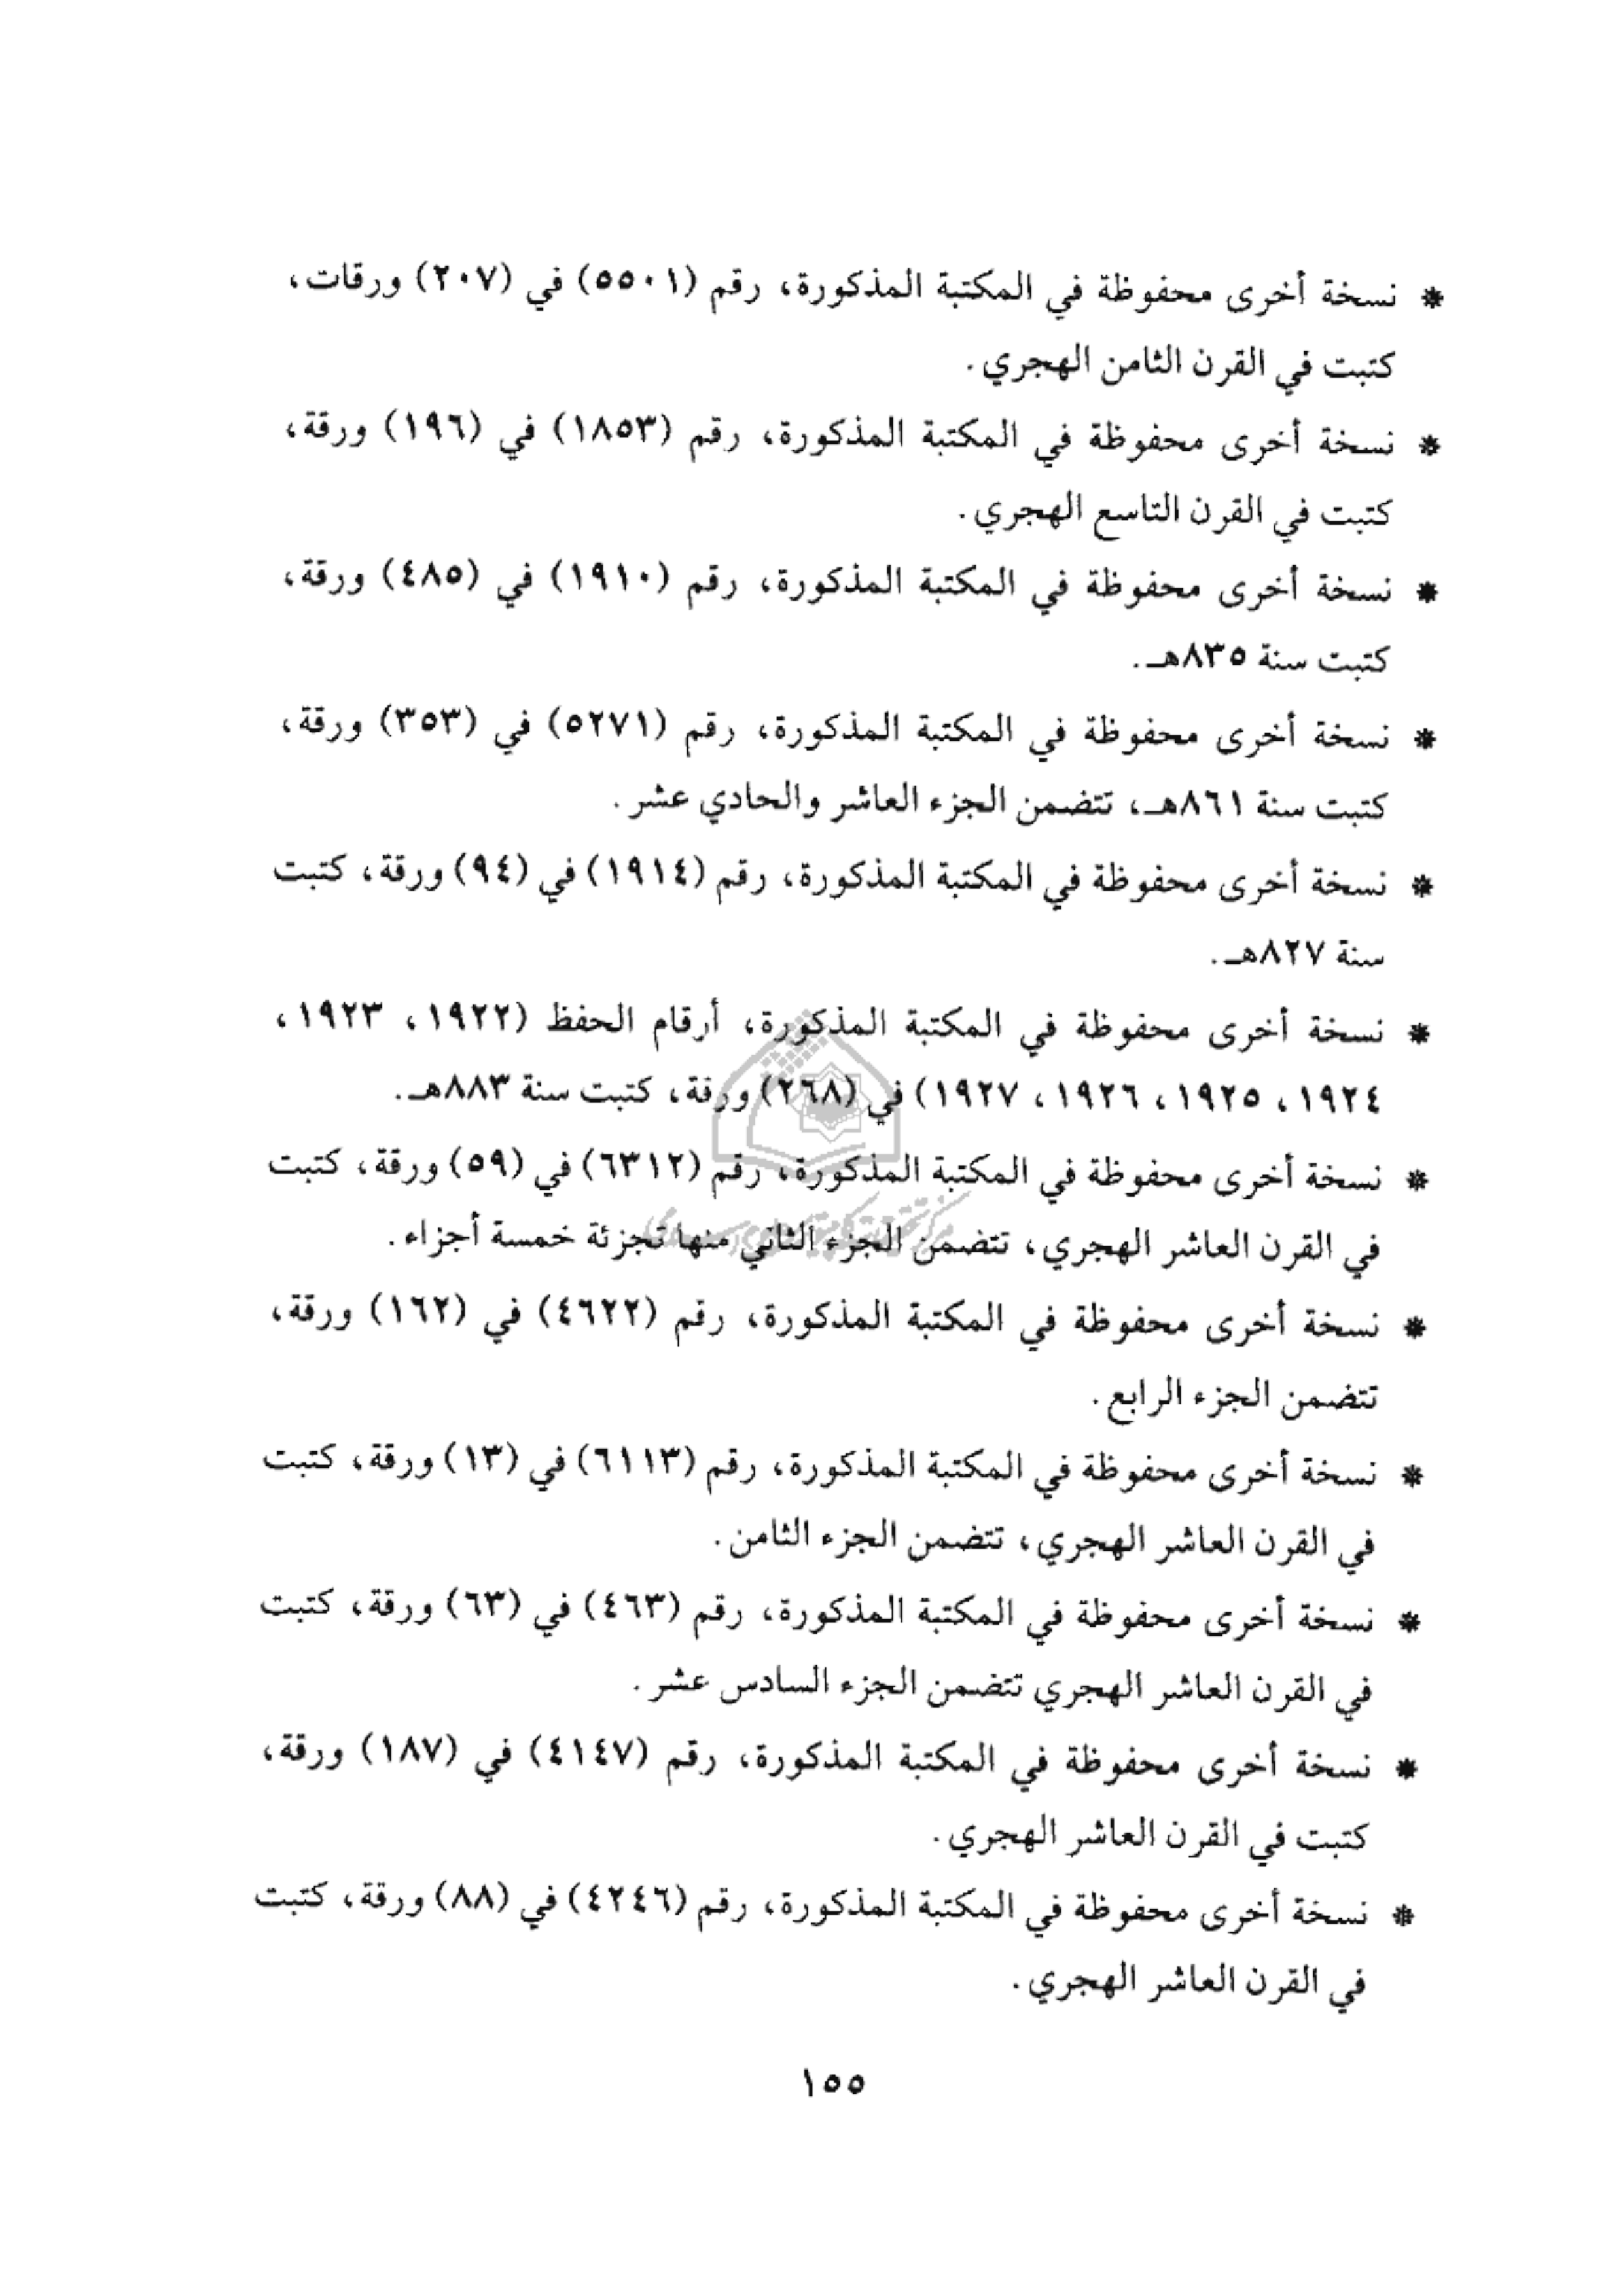 * نسخة أخرى محفوظة في المكتبة المذكورة، رقم (٥٥٠١) في (٢٠٧) ورقات،
كتبت في القرن الثامن الهجري.
* نسخة أخرى محفوظة في المكتبة المذكورة، رقم (١٨٥٣) في (١٩٦) ورقة،
كتبت في القرن التاسع الهجري.
* نسخة أخرى محفوظة في المكتبة المذكورة، رقم (١٩١٠) في (٤٨٥) ورقة،
كتبت سنة ٨٣٥هـ.
* نسخة أخرى محفوظة في المكتبة المذكورة، رقم (٥٢٧١) في (٣٥٣) ورقة،
كتبت سنة ٨٦١هـ، تتضمن الجزء العاشر والحادي عشر.
* نسخة أخرى محفوظة في المكتبة المذكورة، رقم (١٩١٤) في (٩٤) ورقة، كتبت
سنة ٨٢٧هـ.
* نسخة أخرى محفوظة في المكتبة المذكورة، أرقام الحفظ (١٩٢٢، ١٩٢٣،
١٩٢٤، ١٩٢٥، ١٩٢٦، ١٩٢٧) في (٢٦٨) ورقة، كتبت سنة ٨٨٣هـ.
* نسخة أخرى محفوظة في المكتبة المذكورة، رقم (٦٣١٢) في (٥٩) ورقة، كتبت
في القرن العاشر الهجري، تتضمن الجزء الثاني منها تجزئة خمسة أجزاء.
* نسخة أخرى محفوظة في المكتبة المذكورة، رقم (٤٦٢٢) في (١٦٢) ورقة،
تتضمن الجزء الرابع.
* نسخة أخرى محفوظة في المكتبة المذكورة، رقم (٦١١٣) في (١٣) ورقة، كتبت
في القرن العاشر الهجري، تتضمن الجزء الثامن.
* نسخة أخرى محفوظة في المكتبة المذكورة، رقم (٤٦٣) في (٦٣) ورقة، كتبت
في القرن العاشر الهجري تتضمن الجزء السادس عشر.
* نسخة أخرى محفوظة في المكتبة المذكورة، رقم (٤١٤٧) في (١٨٧) ورقة،
كتبت في القرن العاشر الهجري.
* نسخة أخرى محفوظة في المكتبة المذكورة، رقم (٤٢٤٦) في (٨٨) ورقة، كتبت
في القرن العاشر الهجري.
١٥٥